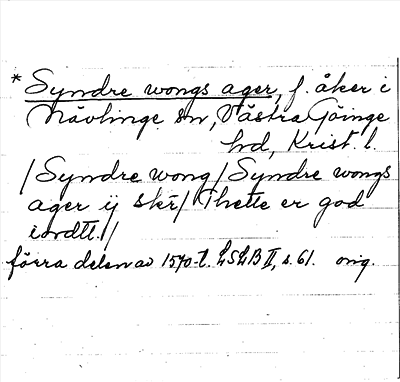 * Syndre wongs ager, f. åker i
Nävlinge sn, Västra Göinge
hd, Krist. l.
/Syndre wong/Syndre wongs
ager ij skr/ Thette er god
iordtt./
förra delen av 1570-t. LSLB II, s. 61. orig.